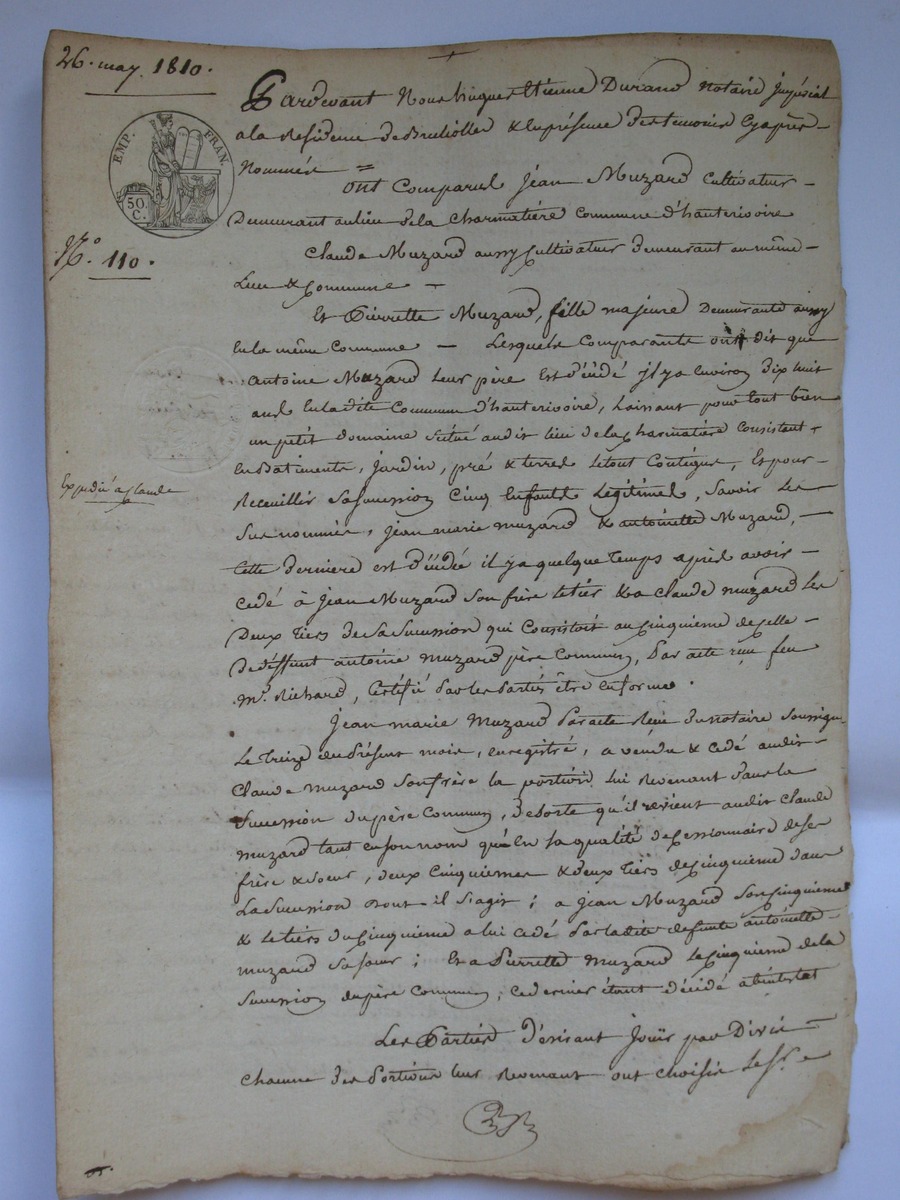 26. may 1810.
EMP. FRAN.
50. C.
N.o 110.
Expedié a Claude
Pardevant Nous hugues Etienne Durand notaire impérial
a la Residence de Brullolles & En présence des temoins Cy après
Nommés =
ont Comparus Jean Muzard Cultivateur
Demeurant au lieu de la Charmatiére Commune d'hauterivoire
Claude Muzard aussy Cultivateur demeurant au même
Lieu & Commune
Et Pierrette Muzard, fille majeure Demeurante aussy
En la même Commune — Lesquels Comparants ont dit que
Antoine Muzard leur père Est décédé il y a environ dix huit
ans En la dite Commune d'hauterivoire, Laissant pour tout bien
un petit domaine situé audit lieu de la Charmatiére Consistant
En Batiments, jardin, pré & terres le tout Contigus, Et pour
Recueillir sa succession Cinq Enfants Legitimes, Savoir Les
Sus nommés, Jean marie muzard & antoinette Muzard,
Cette derniere est décédée il y a quelque temps après avoir
cedé à Jean Muzard son frère le tiers & a Claude muzard Les
Deux tiers de sa succession qui Consistoit au Cinquième de Celle
de deffunt antoine muzard père Commun, Par acte reçu feu
Me. Richard, Certifié Par les Parties être en forme.
Jean marie Muzard Par acte Reçu du notaire Soussigné
Le treize du Présent mois, enregistré, a vendu & cedé audit
Claude muzard son frère la portion lui Revenant dans la
Succession du père Commun, De sorte qu'il revient audit Claude
muzard tant en son nom qu'En sa qualité de Cessionnaire de ses
frère & soeur, deux Cinquiemes & deux tiers de Cinquième dans
La Succession dont il s'agit; a Jean Muzard son Cinquième
& le tiers du Cinquième a lui Cedé Par la dite defunte antoinette
muzard sa soeur; Et a Pierrette muzard Le Cinquième de la
Succession du père Commun, ce dernier étant décédé abintestat
Les Parties désirant Jouir par Divis
Chacune des Portions leur Revenant ont choisis le Sr.